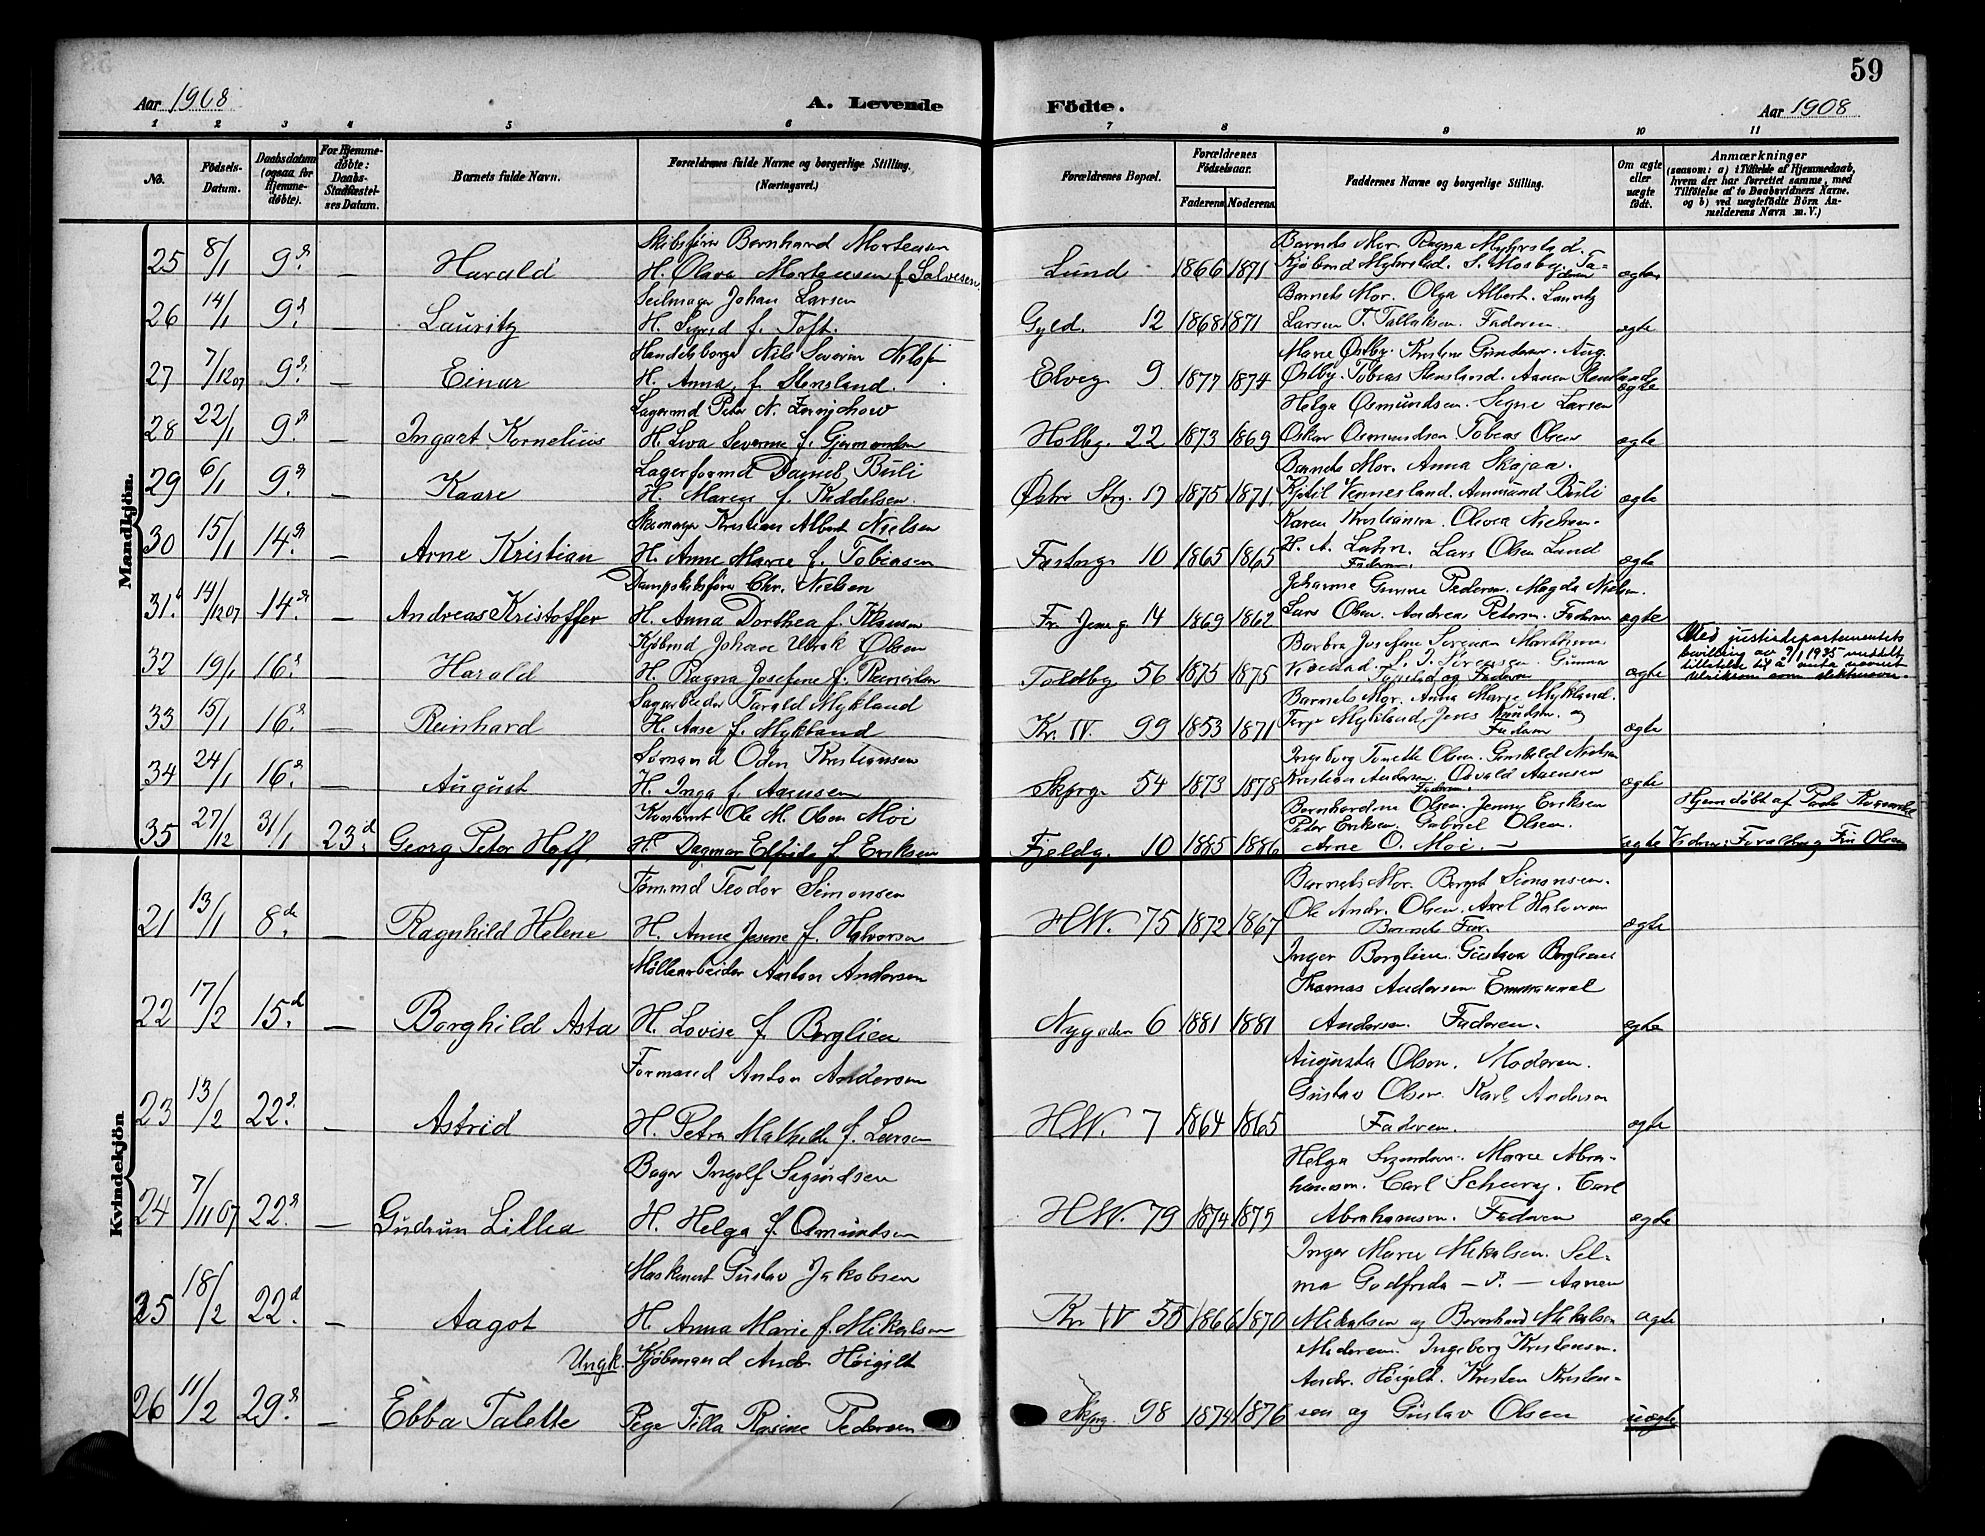 59
Aar 1908
A. Levende Födte.
Aar 1908
1 2 3 4 5 6 7 8 9 10 11
No.
Födsels-Datum.
Daabsdatum (ogsaa for Hjemme-døbte).
For Hjemme-døbte: Daabs-Stadfæstel-ses Datum.
Barnets fulde Navn.
Forældrenes fulde Navne og borgerlige Stilling, (Næringsvei.)
Forældrenes Bopæl.
Forældrenes Födselsaar.
Faderens Moderens
Faddernes Navne og borgerlige Stilling.
Om ægte eller uægte födt.
Anmærkninger
(saasom: a) i Tilfælde af Hjemmedaab, hvem der har forrettet samme, med Tilföielse af to Daabsvidners Navne, og b) ved uægtefödte Börn Anmelderens Navn m. V.)
Mandkjön.
Skibsfører Bernhard Mortensen Barnets Mor. Ragna Myhrstad.
25 8/1 9d. — Harald H. Olava Mortensen f. Salvesen Lund 1866 1871 Kjøbmd Myhrstad. S. Mosby. Faderen ægte
Seilmager Johan Larsen Barnets Mor. Olga Albert. Lauritz
26 14/1 9d. — Lauritz H. Sigrid f. Toft. Gyld. 12 1868 1871 Larsen T. Tallaksen. Faderen. ægte
Nils Severin Marie Østby. Aug.
27 7/12 07 9d. — Einar H. Anna f. Stensland. Elveg 9 1877 1874 Østby. Tobias Stensland. Aanen Stensland ægte
Lagermd Peter N. Helga Osmundsen. Signe Larsen
28 22/1 9d. — Ingart Kornelius H. Severine f. Holbg. 22 1873 1869 Oskar Osmundsen Tobias Olsen ægte
Lagerformd Daniel Büli Barnets Mor. Anna Skajaa.
29 6/1 9d. — Kaare H. f. Østre Strg. 17 1875 1871 Kjetil Vennesland. Ammund Büli ægte
Kristian Albert Nielsen Karen Kristiansen Olivia Nielsen.
30 15/1 14d. — Arne Kristian H. Anne Marie f. Tobiasen Fæstng 10 1865 1865 H. A. Lahn. Lars Olsen Lund Faderen. ægte
Dampskibsfører Chr. Nielsen Johanne Gunine Pedersen. Magda Nielsen.
31. 14/12 07 14d. — Andreas Kristoffer H. Anna Dorthea f. Klausen Fr. 14 1869 1862 Lars Olsen. Andreas Petersen. Faderen ægte
Kjøbmd Johan Ulrik Olsen Barbra Josefine
32 19/1 16d. — Harald H. Ragna Josefine f. Toldbg 56 1875 1875 S. J. Sørensen. Gunnar og Faderen ægte Med justisdepartementets bevilling av 9/1 1935 meddelt tillatelse til å anta navnet Ulriksen som slektsnavn.
Sagarbeider Tarald Mykland Barnets Mor. Anna Marie Mykland.
33 15/1 16d. — Reinhard H. Aase f. Mykland Kr. IV. 99 1853 1871 Terje Mykland, Jens Knudsen. og Faderen ægte
Sømand Oden Kristiansen Ingeborg Tonette Olsen. Gunhild Nielsen
34 24/1 16d. — August H. Inga f. Aanensen Skprg. 54 1873 1878 Kristian Andersen. Osvald Aanensen Faderen. ægte
Ole M. Olsen Moi Bernhardine Olsen. Jenny Eriksen Hjemdøbt af
35 27/12 31/1 23d. Georg Peter Hoff. H. Dagmar Elfride f. Eriksen Fjeldg. 10 1885 1886 Peder Eriksen. Gabriel Olsen. Arne O. Moi. — ægte Olsen
Kvindekjön
Tømmd Teodor Simonsen Barnets Mor. Berget Simonsen.
21 13/1 8de. — Ragnhild Helene H. Anne Jesine f. Halvorsen H.W. 75 1872 1867 Ole Andr. Olsen. Axel Halvorsen Barnets Far. ægte
Møllearbeider Anton Andersen Inger Borglien. Gustava Borglien
22 17/2 15.d — Borghild Asta H. Lovise f. Borglien Nygaden 6 1881 1881 Thomas Andersen Emmanuel Andersen. Faderen. ægte
Formand Anton Andersen Augusta Olsen. Moderen.
23 13/2 22d. — Astrid H. Petra Mathilde f. Larsen H.W. 7 1864 1865 Gustav Olsen. Karl Andersen Faderen. ægte
Bager Ingolf Sigurdsen Helga Marie Abrahamsen. Carl Carl
24 7/11 07 22d. — Gudrun Lillia H. Helga f. Osmundsen H.W. 79 1874 1875 Abrahamsen. Faderen ægte
Maskinist Gustav Jakobsen Inger Marie Mikalsen. Selma Godfrida — — Aanen
25 18/2 22d. — Aagot H. Anna Marie f. Mikalsen Kr. IV 55 1866 1870 Mikalsen og Bernhard Mikalsen ægte
Ungk. Kjøbmand Andr. Høigilt Moderen. Ingeborg Kristensen.
26 11/2 29d. — Ebba Talette Pige Tilla Rasine Pedersen Skprg 98 1874 1876 Andr. Høigilt. Kristen Kristensen og Gustav Olsen uægte